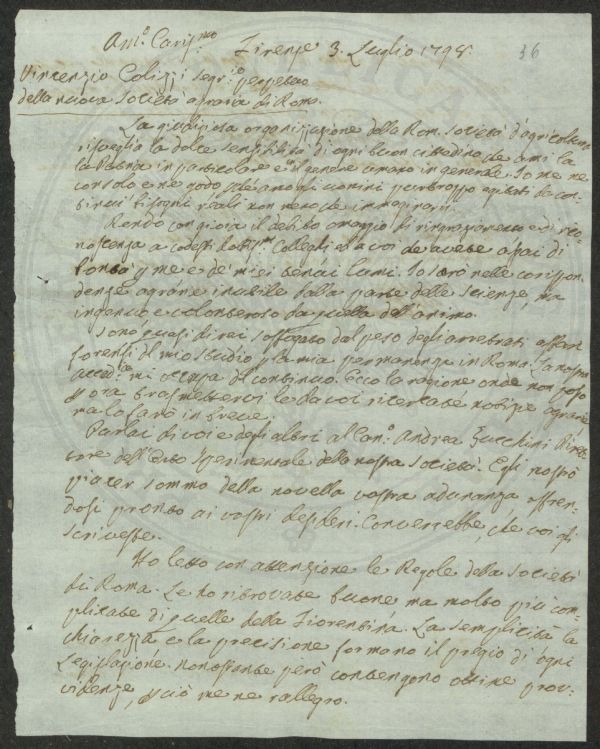 Am.o Caris.mo
Firenze 3. Luglio 1798.
36
Vincenzio Colizzi Segr.io perpetuo
della nuova Società agraria di Roma.
La giudiziosa organizzazione della Rom. Società d'agricoltura
risveglia la dolce sensibilità di ogni buon cittadino che ama la
la Patria in particolare e il genere umano in generale. Io me ne
consolo e ne godo, gli uomini purtroppo agitati da con-
tinui bisogni reali non meno che immaginarj.
Rendo con gioia il debito omaggio di ringraziamento e di rico-
noscenza a codesti Colleghi ed a voi che avete assai di
bontà p me e de' miei tenui lumi. Io sarò nelle corrispon-
denze agrarie inutile dalla parte delle scienze, ma
ingenuo e volonteroso da quella dell'animo.
Sono quasi direi soffogato dal peso degli arretrati affari
forensi di mio studio p la mia permanenza in Roma. La nostra
Accad.ia mi occupa di continuo. Ecco la ragione onde non posso
p ora trasmettervi le da voi ricercate notizie agrarie
ma lo farò in breve.
Parlai di voi e degli altri al Can.o Andrea Zucchini Diret-
tore dell'Orto Sperimentale della nostra Società. Egli mostrò
piacer sommo della novella vostra adunanza offren-
dosi pronto ai vostri desiderj. Converrebbe, che voi gli
scriveste.
Ho letto con attenzione le Regole della Società
di Roma. Le ho ritrovate buone ma molto più com-
plicate di quelle della Fiorentina. La semplicità la
chiarezza e la precisione formano il pregio di ogni
Legislazione. nonostante però contengono ottime prov-
videnze, p ciò me ne rallegro.